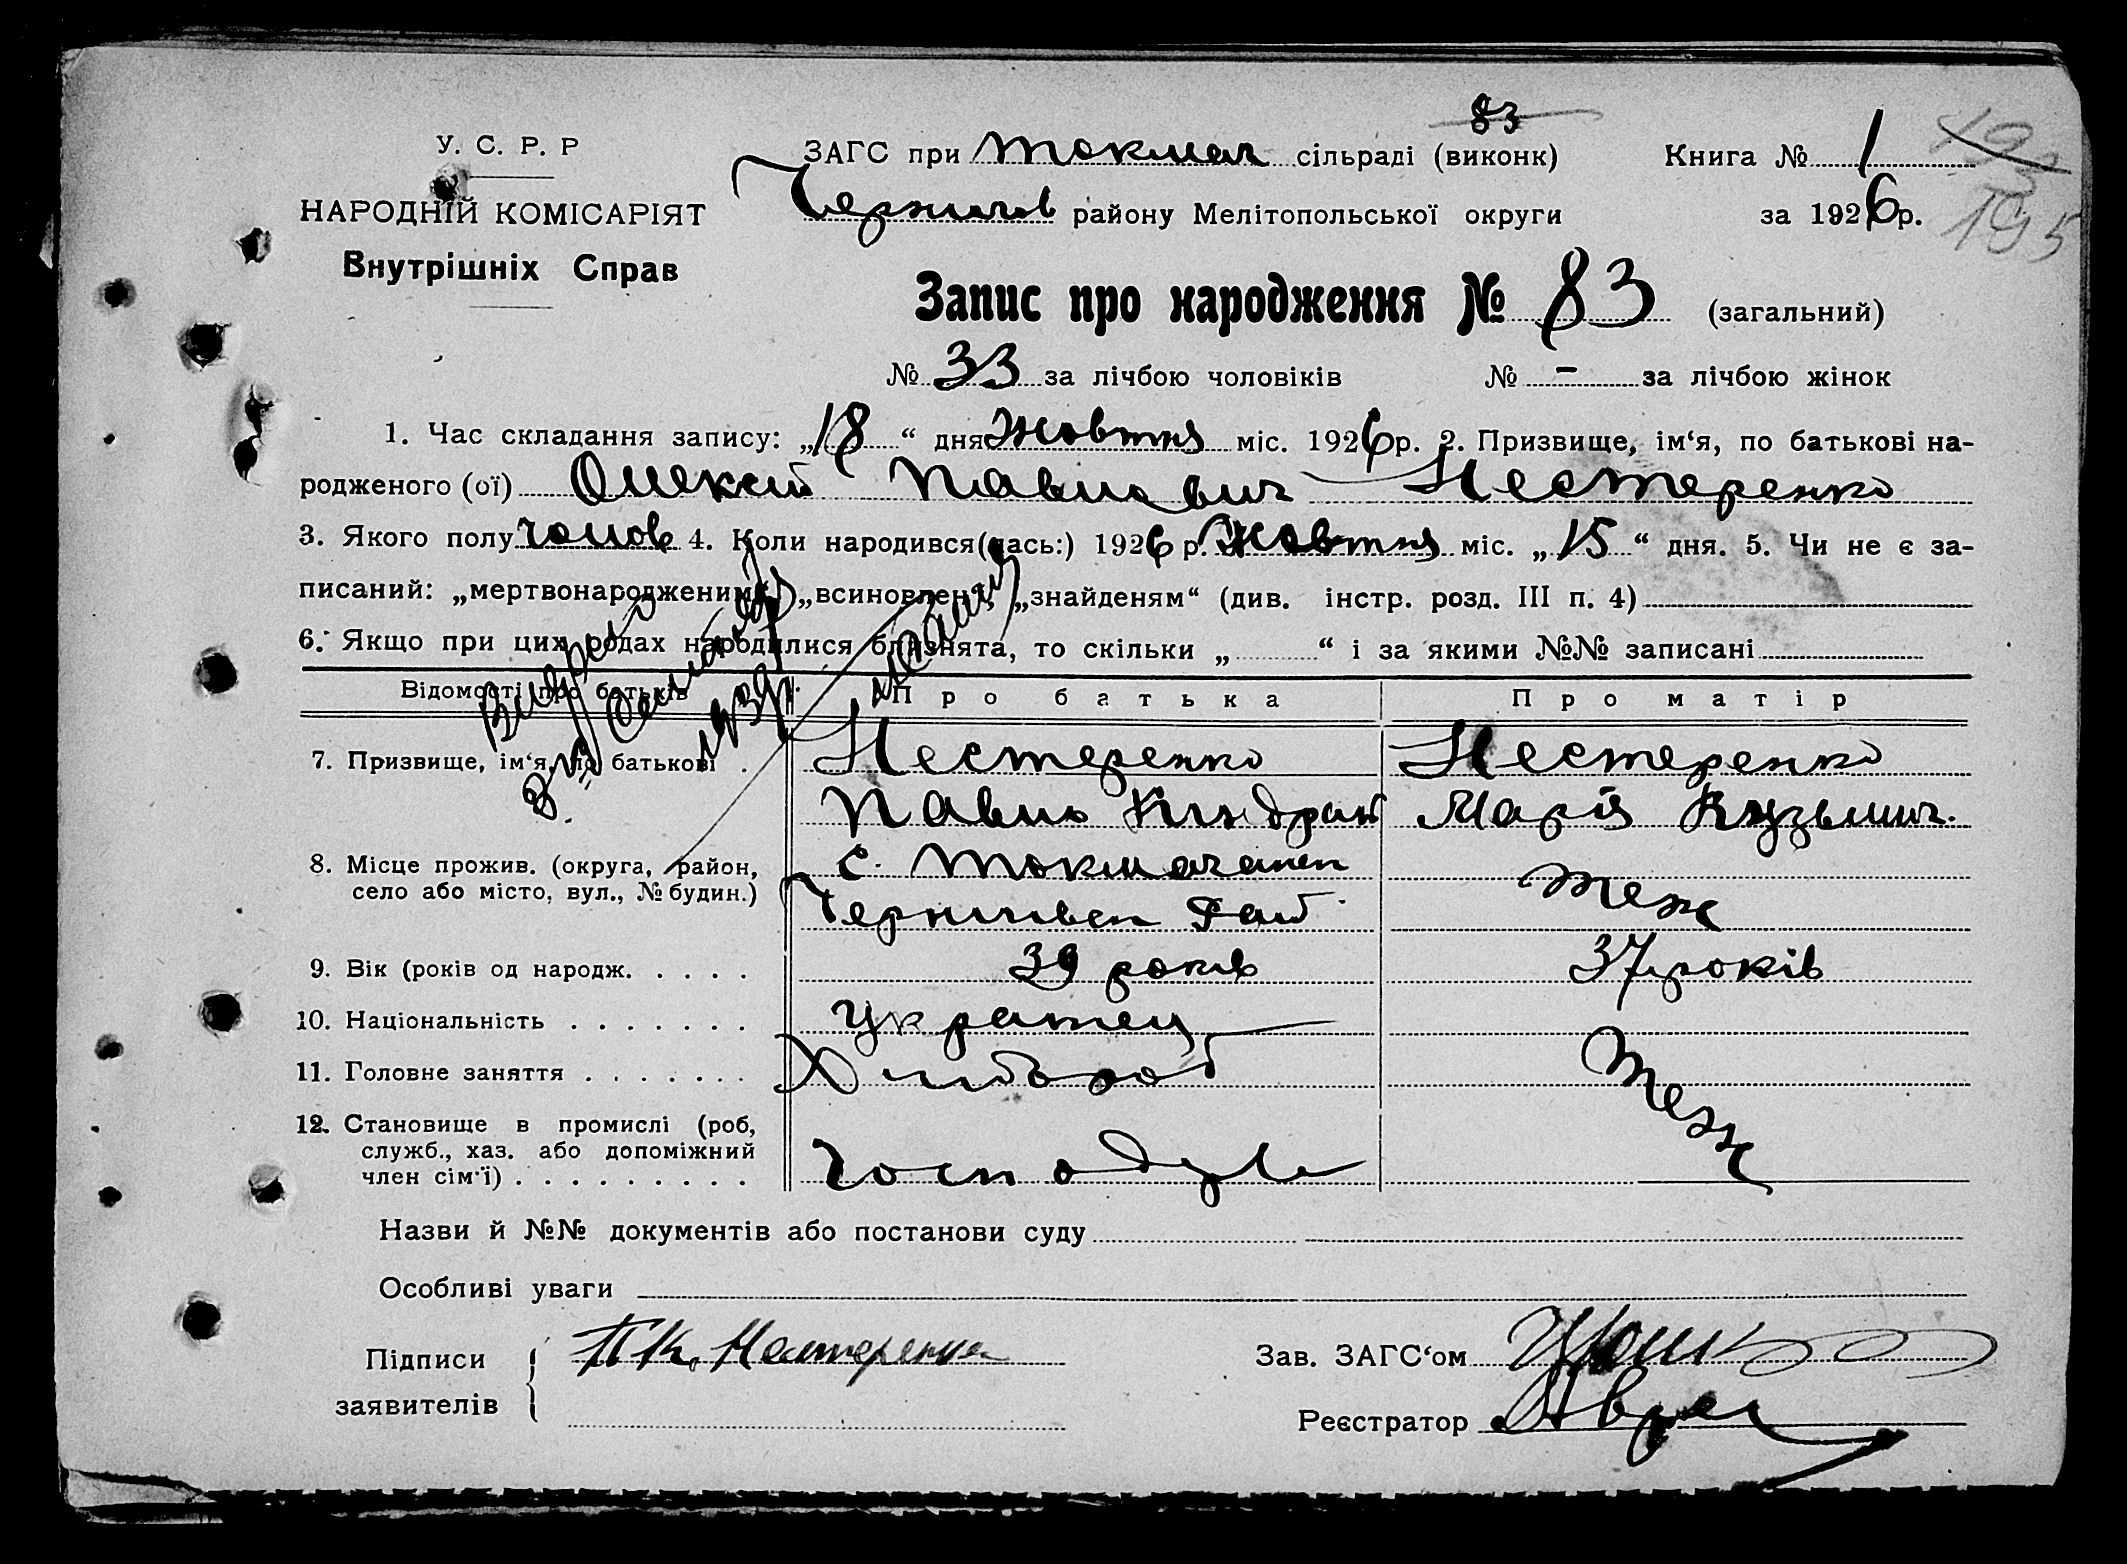 83
У. С. Р. Р ЗАГС при Токмач сільраді (виконк) Книга № 1 193
НАРОДНІЙ КОМІСАРІЯТ Чернигов району Мелітопольської округи за 1926 р. 195
Внутрішніх Справ
Запис про народження № 83 (загальний)
№ 33 за лічбою чоловіків № - за лічбою жінок
1. Час складання запису: „18“ дня Жовтня міс. 1926 р. 2. Призвище, ім‘я, по батькові на-
родженого (ої) Олексій Павлович Нестеренко
3. Якого полу чолов 4. Коли народився(лась:) 1926 р. Жовтня міс. „15“ дня. 5. Чи не є за-
писаний: „мертвонародженим“, „всиновлен“, „знайденям“ (див. інстр. розд. III п. 4)
6. Якщо при цих родах народилися близнята, то скільки „ “ і за якими №№ записані
Відомості про батьків Про батька Про матір
7. Призвище, ім‘я, по батькові Нестеренко Нестеренко
Павло Киндрат Марія Кузьмич.
8. Місце прожив. (округа, район, с. Токмачанск теж
село або місто, вул., № будин.) Чернигвск Рай
9. Вік (років од народж. 39 років 37 років
10. Національність Украінец
11. Головне заняття Хлибороб теж
12. Становище в промислі (роб,
служб., хаз. або допоміжний
член сім‘ї)
Назви й №№ документів або постанови суду
Особливі уваги
Підписи П К. Нестеренко Зав. ЗАГС‘ом
заявителів Реєстратор